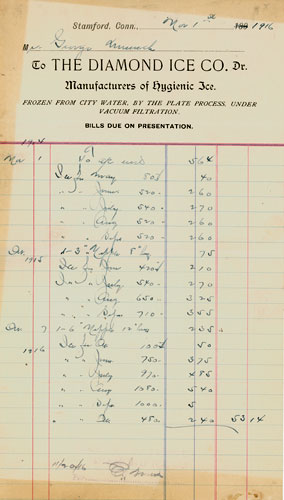 Stamford, Conn., Nov 1st 1916
M George
To THE DIAMOND ICE CO. Dr.
Manufacturers of Hygienic Ice.
FROZEN FROM CITY WATER, BY THE PLATE PROCESS, UNDER
VACUUM FILTRATION.
BILLS DUE ON PRESENTATION.
1914
Nov 1 564
Ice for May 80 40
" " June 520 260
" " July 540 270
" " Aug 520 260
" " Sept 520 260
Dec 75
1915 Ice for June 420 210
" " July 540 270
" " Aug 650 325
" " Sept 710 355
Dec 7 1-6" Nipple 12" long 235
1916 Ice for 100 50
" " June 750 375
" " July 970 485
" " Aug 1080 540
" " Sept 1000 5
" " Oct 480 240 53 14